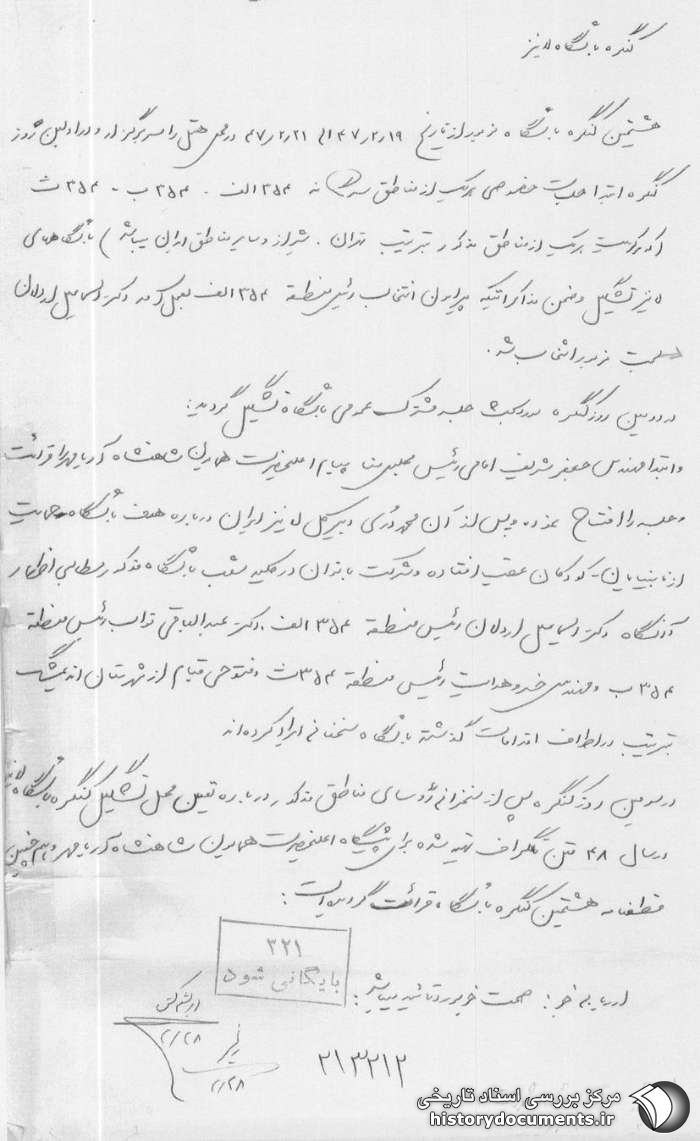 کنگره باشگاه لاینز
هشتمین کنگره باشگاه مزبور از تاریخ ۴۷/۲/۱۹ الی ۴۷/۲/۲۱ در محل هتل رامسر برگزار و در اولین روز
کنگره ابتدا جلسات خصوصی هریک از مناطق سه گانه ۳۵۴ الف - ۳۵۴ ب - ۳۵۴ ث
هریک از مناطق مذکور بترتیب تهران . شیراز و سایر مناطق ایران میباشد) باشگاههای
لاینز تشکیل و ضمن مذاکراتیکه پیرامون انتخاب رئیس منطقه ۳۵۴ الف بعمل آمد دکتر اسماعیل اردلان
بسمت مزبور انتخاب شد .
در دومین روز کنگره جلسه مشترک عمومی باشگاه تشکیل گردید :
و ابتدا مهندس جعفر شریف امامی رئیس مجلس سنا پیام اعلیحضرت همایون شاهنشاه آریامهر را قرائت
و جلسه را افتتاح نموده و پس از آن محمد دبیر کل لاینز ایران درباره هدف باشگاه و حمایت
از نابینایان - کودکان عقب افتاده و شرکت بانوان در کلیه شعب باشگاه مذکور مطالبی اظهار
آنگاه دکتر اسماعیل اردلان رئیس منطقه ۳۵۴ الف . دکتر عبدالباقی نواب رئیس منطقه
۳۵۴ ب و مهندس خسرو هدایت رئیس منطقه ۳۵۴ ث و فتوحی قیام از شهرستان اندیمشک
بترتیب در اطراف اقدامات گذشته باشگاه سخنانی ایراد کرده‌اند
در سومین روز کنگره پس از سخنرانی رؤسای مناطق مذکور درباره تعیین محل تشکیل کنگره باشگاه لاینز
در سال ۴۸ متن تلگراف تهیه شده برای پیشگاه اعلیحضرت همایون شاهنشاه آریامهر و همچنین
قطعنامه هشتمین کنگره باشگاه قرائت گردیده است :
ارزیابی خبر : صحت خبر مورد تائید میباشد :
۳۲۱
بایگانی شود
۲/۲۸
۲/۲۸
۲۱۳۲۱۲
مرکز بررسی اسناد تاریخی
historydocuments.ir